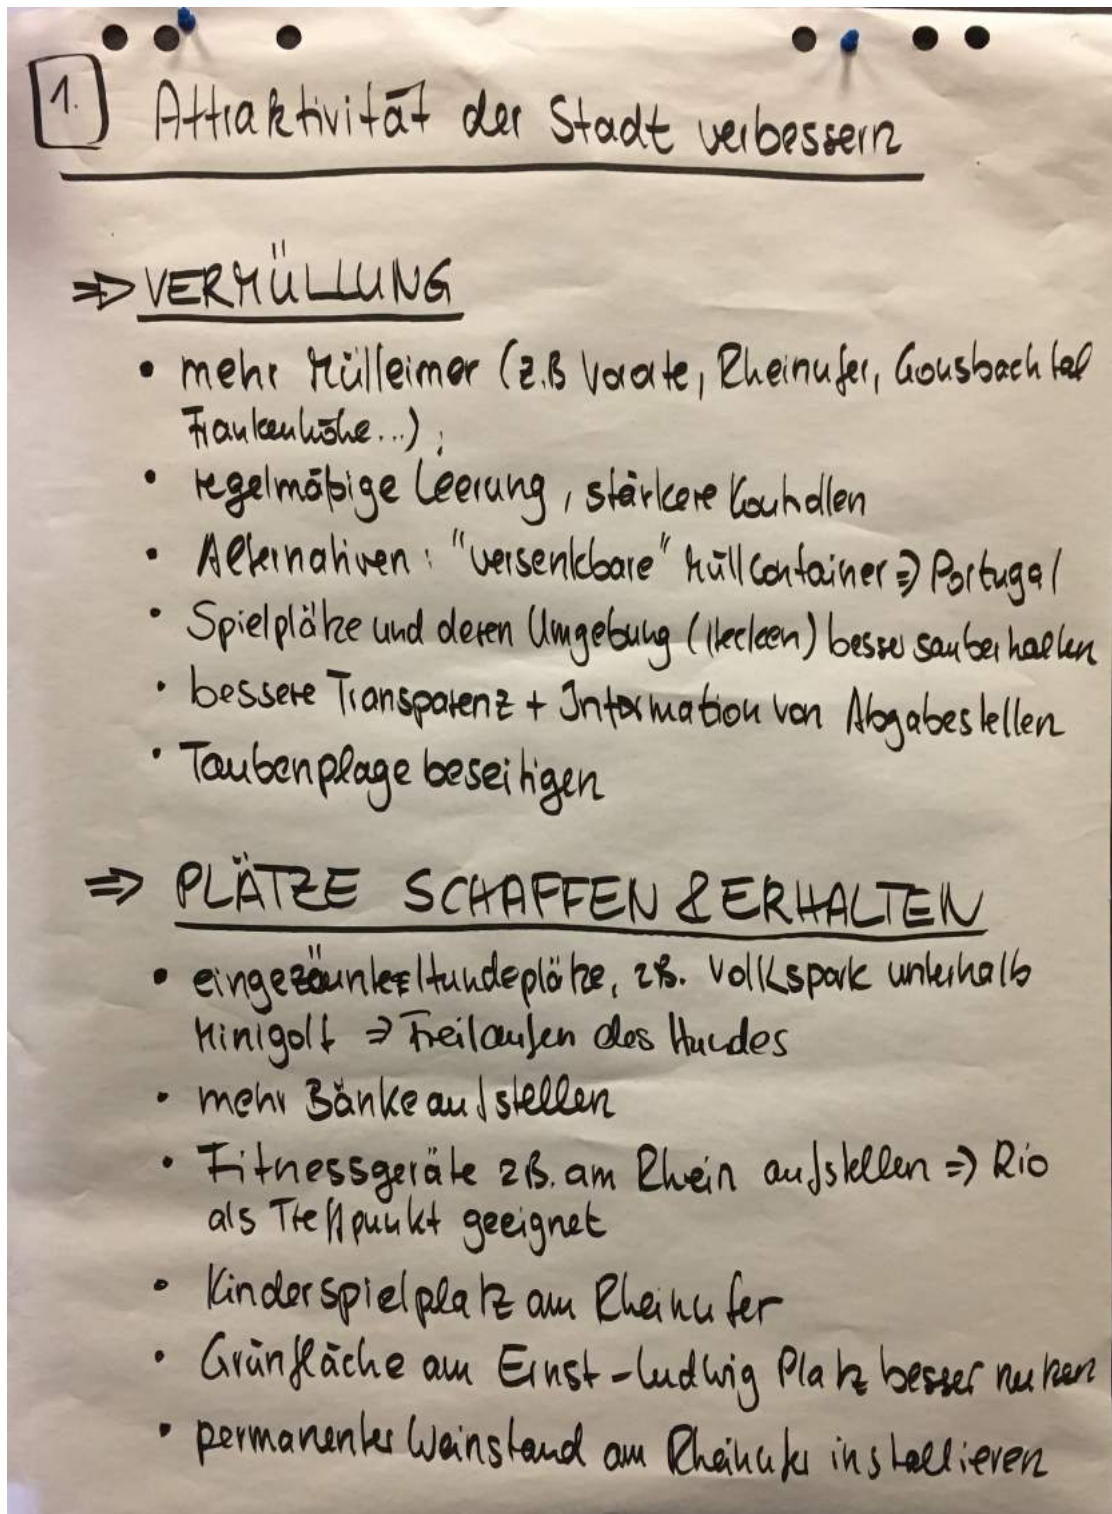 1. Attraktivität der Stadt verbessern
⇒ VERMÜLLUNG
• mehr Mülleimer (z.B Vororte, Rheinufer, Gonsbachtal
Frankenhöhe...);
• regelmäßige Leerung, stärkere Kontrollen
• Alternativen: "versenkbare" Müllcontainer ⇒ Portugal
• Spielplätze und deren Umgebung (Hecken) besser sauberhalten
• bessere Transparenz + Information von Abgabestellen
• Taubenplage beseitigen
⇒ PLÄTZE SCHAFFEN & ERHALTEN
• eingezäunte Hundeplätze, z.B. Volkspark unterhalb
Minigolf ⇒ Freilaufen des Hundes
• mehr Bänke aufstellen
• Fitnessgeräte z.B. am Rhein aufstellen ⇒ Rio
als Treffpunkt geeignet
• Kinderspielplatz am Rheinufer
• Grünfläche am Ernst-Ludwig Platz besser nutzen
• permanenter Weinstand am Rheinufer installieren